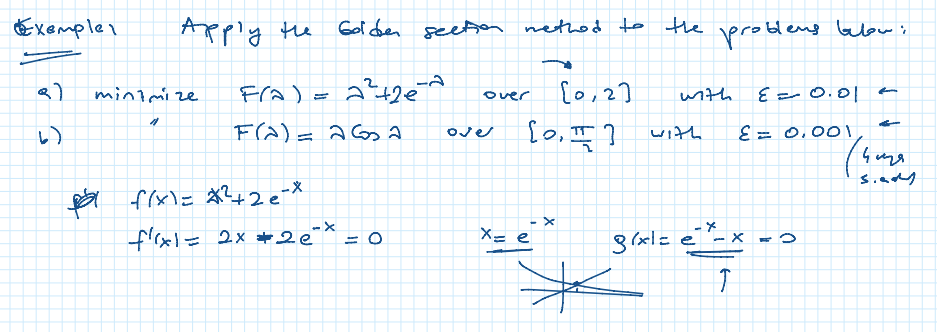 Example: Apply the Golden section method to the problems below:
a) minimize F(λ) = λ²+2e^-λ over [0,2] with ε = 0.01 ←
b) " F(λ) = λ Cos λ over [0, π/2] with ε = 0.001 ←
f(x) = x²+2e^-x
f'(x) = 2x - 2e^-x = 0 x = e^-x g(x) = e^-x - x = 0